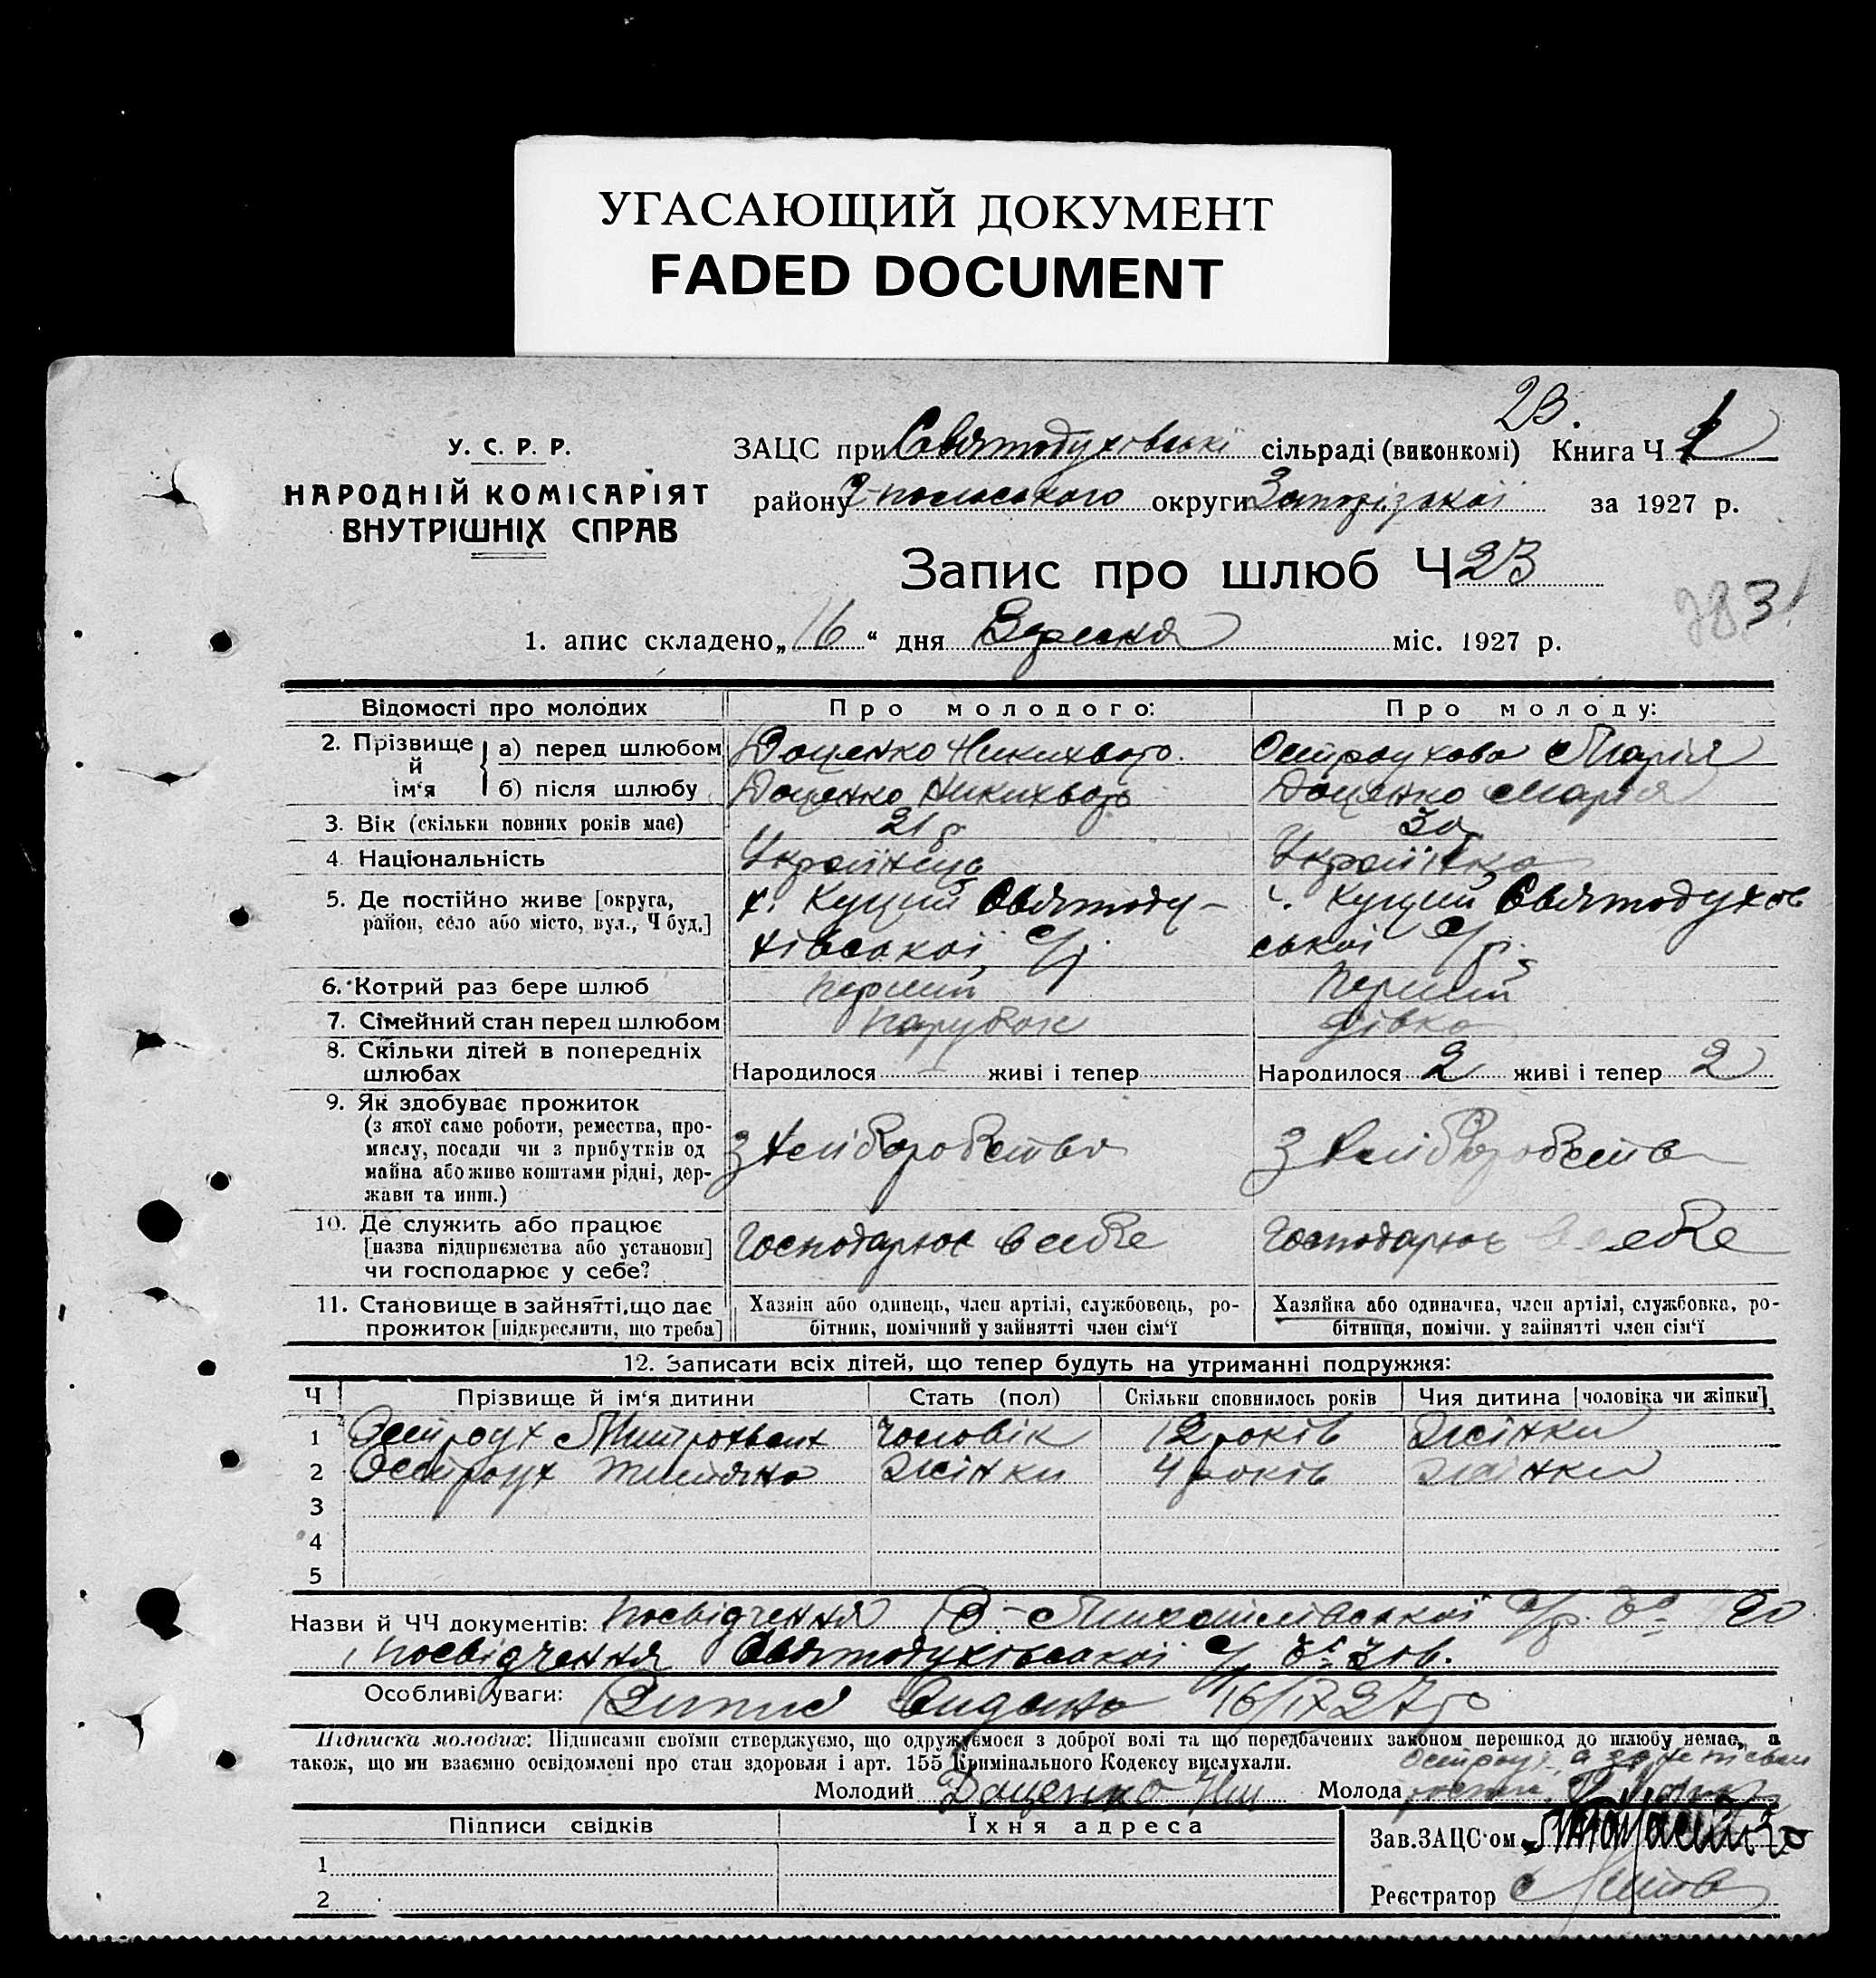 УГАСАЮЩИЙ ДОКУМЕНТ
FADED DOCUMENT
23.
У. С. Р. Р.
НАРОДНІЙ КОМІСАРІЯТ
ВНУТРІШНІХ СПРАВ
ЗАЦС при Святодухівські сільраді (виконкомі) Книга Ч 1
району округи Запорізької за 1927 р.
Запис про шлюб Ч 23
1. апис складено „16“ дня Вересня міс. 1927 р.
Відомості про молодих
Про молодого:
Про молоду:
2. Прізвище й ім‘я
а) перед шлюбом
Доценко Никихвор.
Остроухова Марія
б) після шлюбу
Доценко Никихвор
Доценко Марія
3. Вік (скільки повних років має)
21 р
30 р
4. Національність
Українець
Українка
5. Де постійно живе [округа,
район, село або місто, вул., Ч буд.]
х. Куций Святоду-
хівської с/р.
х. Куций Святодухов
ської с/р.
6. Котрий раз бере шлюб
перший
перший
7. Сімейний стан перед шлюбом
парубок
дівка
8. Скільки дітей в попередніх
шлюбах
Народилося живі і тепер
Народилося 2 живі і тепер 2
9. Як здобуває прожиток
(з якої саме роботи, ремества, про-
мислу, посади чи з прибутків од
майна або живе коштами рідні, дер-
жави та инш.)
з хліборобства
з хліборобства
10. Де служить або працює
[назва підприємства або установи]
чи господарює у себе?
Господарює в себе
Господарює в себе
11. Становище в зайнятті, що дає
прожиток [підкреслити, що треба]
Хазяїн або одинець, член артілі, службовець, ро-
бітник, помічний у зайнятті член сім‘ї
Хазяйка або одиначка, член артілі, службовка, ро-
бітниця, помічн. у зайнятті член сім‘ї
12. Записати всіх дітей, що тепер будуть на утриманні подружжя:
Ч Прізвище й ім‘я дитини Стать (пол) Скільки сповнилось років Чия дитина [чоловіка чи жінки]
1 Остроух Митрохван чоловік 12 років жінки
2 Остроух жінки 4 років жінки
3
4
5
Назви й ЧЧ документів: посвідчення В-Михайлівської с/р.
посвідчення Святодухівської с/р
Особливі уваги: Випис видано 16/IX 27 р
Підписки молодих: Підписами своїми стверджуємо, що одружуємося з доброї волі та що передбачених законом перешкод до шлюбу немає, а
також, що ми взаємно освідомлені про стан здоровля і арт. 155 Кримінального Кодексу вислухали.
Молодий Доценко Ни Молода
Підписи свідків Їхня адреса
1
2
Зав. ЗАЦС‘ом
Реєстратор